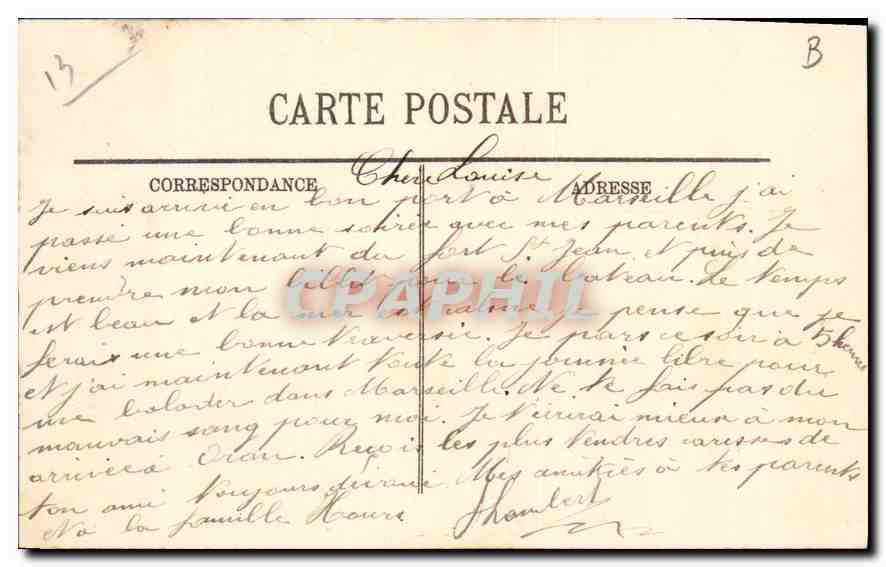 13
B
CARTE POSTALE
CORRESPONDANCE
ADRESSE
Chère Louise
Je suis arrivé en bon port à Marseille j'ai
passé une bonne soirée avec mes parents. Je
viens maintenant du fort St Jean et puis de
prendre mon billet pour le bateau. Le temps
est beau et la mer est calme je pense que je
ferais une bonne traversée. Je pars ce soir à 5 heures
et j'ai maintenant toute la journée libre pour
me balader dans Marseille. Ne te fais pas du
mauvais sang pour moi. Je t'écrirai mieux à mon
arrivée à Oran. Reçois les plus tendres caresses de
ton ami toujours Mes amitiés à tes parents
et à la famille
CPAPHIL